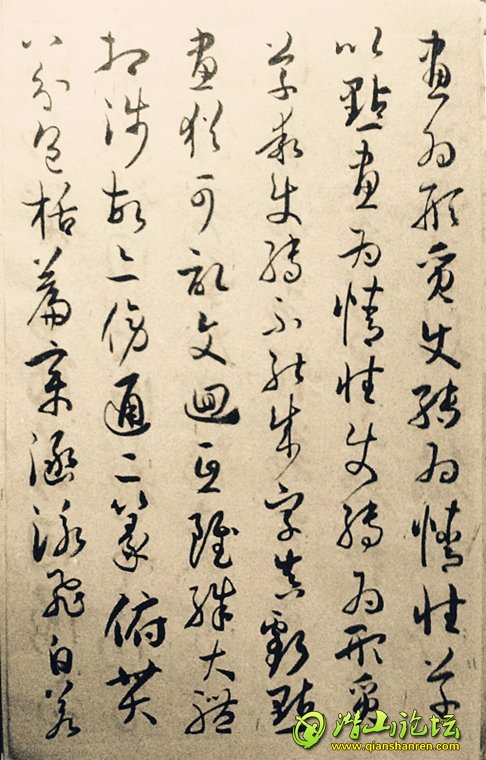 畫為形質使轉為情性草
以點畫為情性使轉為形質
草乖使轉不能成字真虧點
畫猶可記文迴互雖殊大體
相涉故亦傍通二篆俯貫
八分包括篇章涵泳飛白若
潜山论坛
www.qianshanren.com